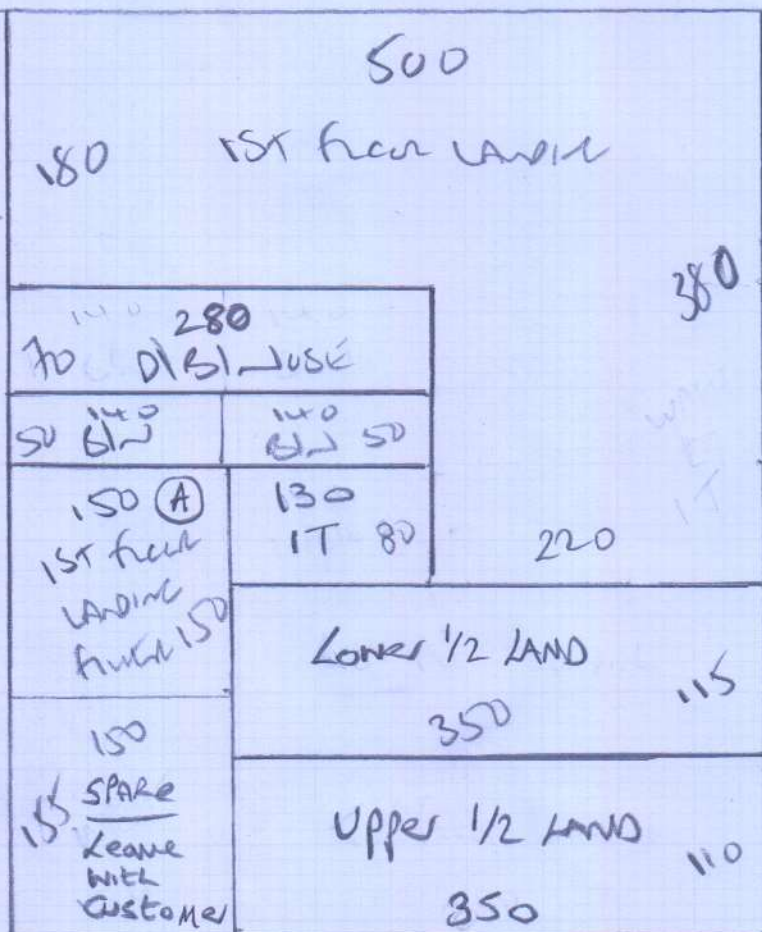 500
180 1ST FLOOR LANDING
380
280
70
50 140 BIN
140 BIN 50
150 A
1ST FLOOR
LANDING
150
130
1T 80
220
Lower 1/2 LAND
350 115
150
155 SPARE
Leave
with
Customer
Upper 1/2 LAND
350 110